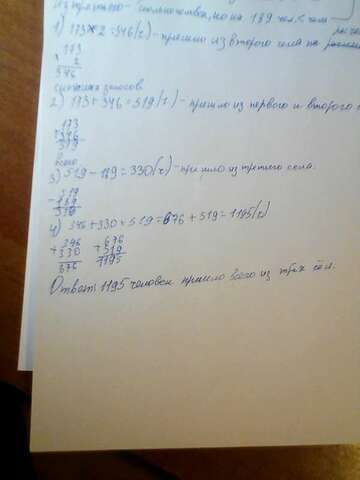 из третьего - сколько человек, но на 189 чел. < чем
1) 173×2=346(ч) - пришло из второго села на
173
2
346
2) 173+346=519(ч) - пришло из первого и второго
173
+346
519
всего
3) 519-189=330(ч) - пришло из третьего села.
519
-189
330
4) 346+330+519=676+519=1195(ч)
+346 +676
330 519
676 1195
Ответ: 1195 человек пришло всего из трёх сёл.